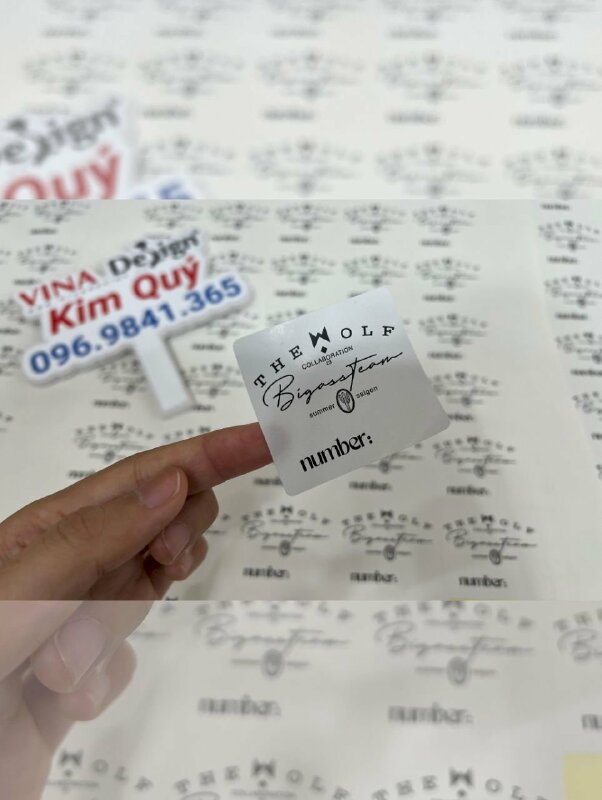 VINA Design
Kim Quý
096.9841.365
THE WOLF
COLLABORATION
Bigassteam
summer saigon
number: